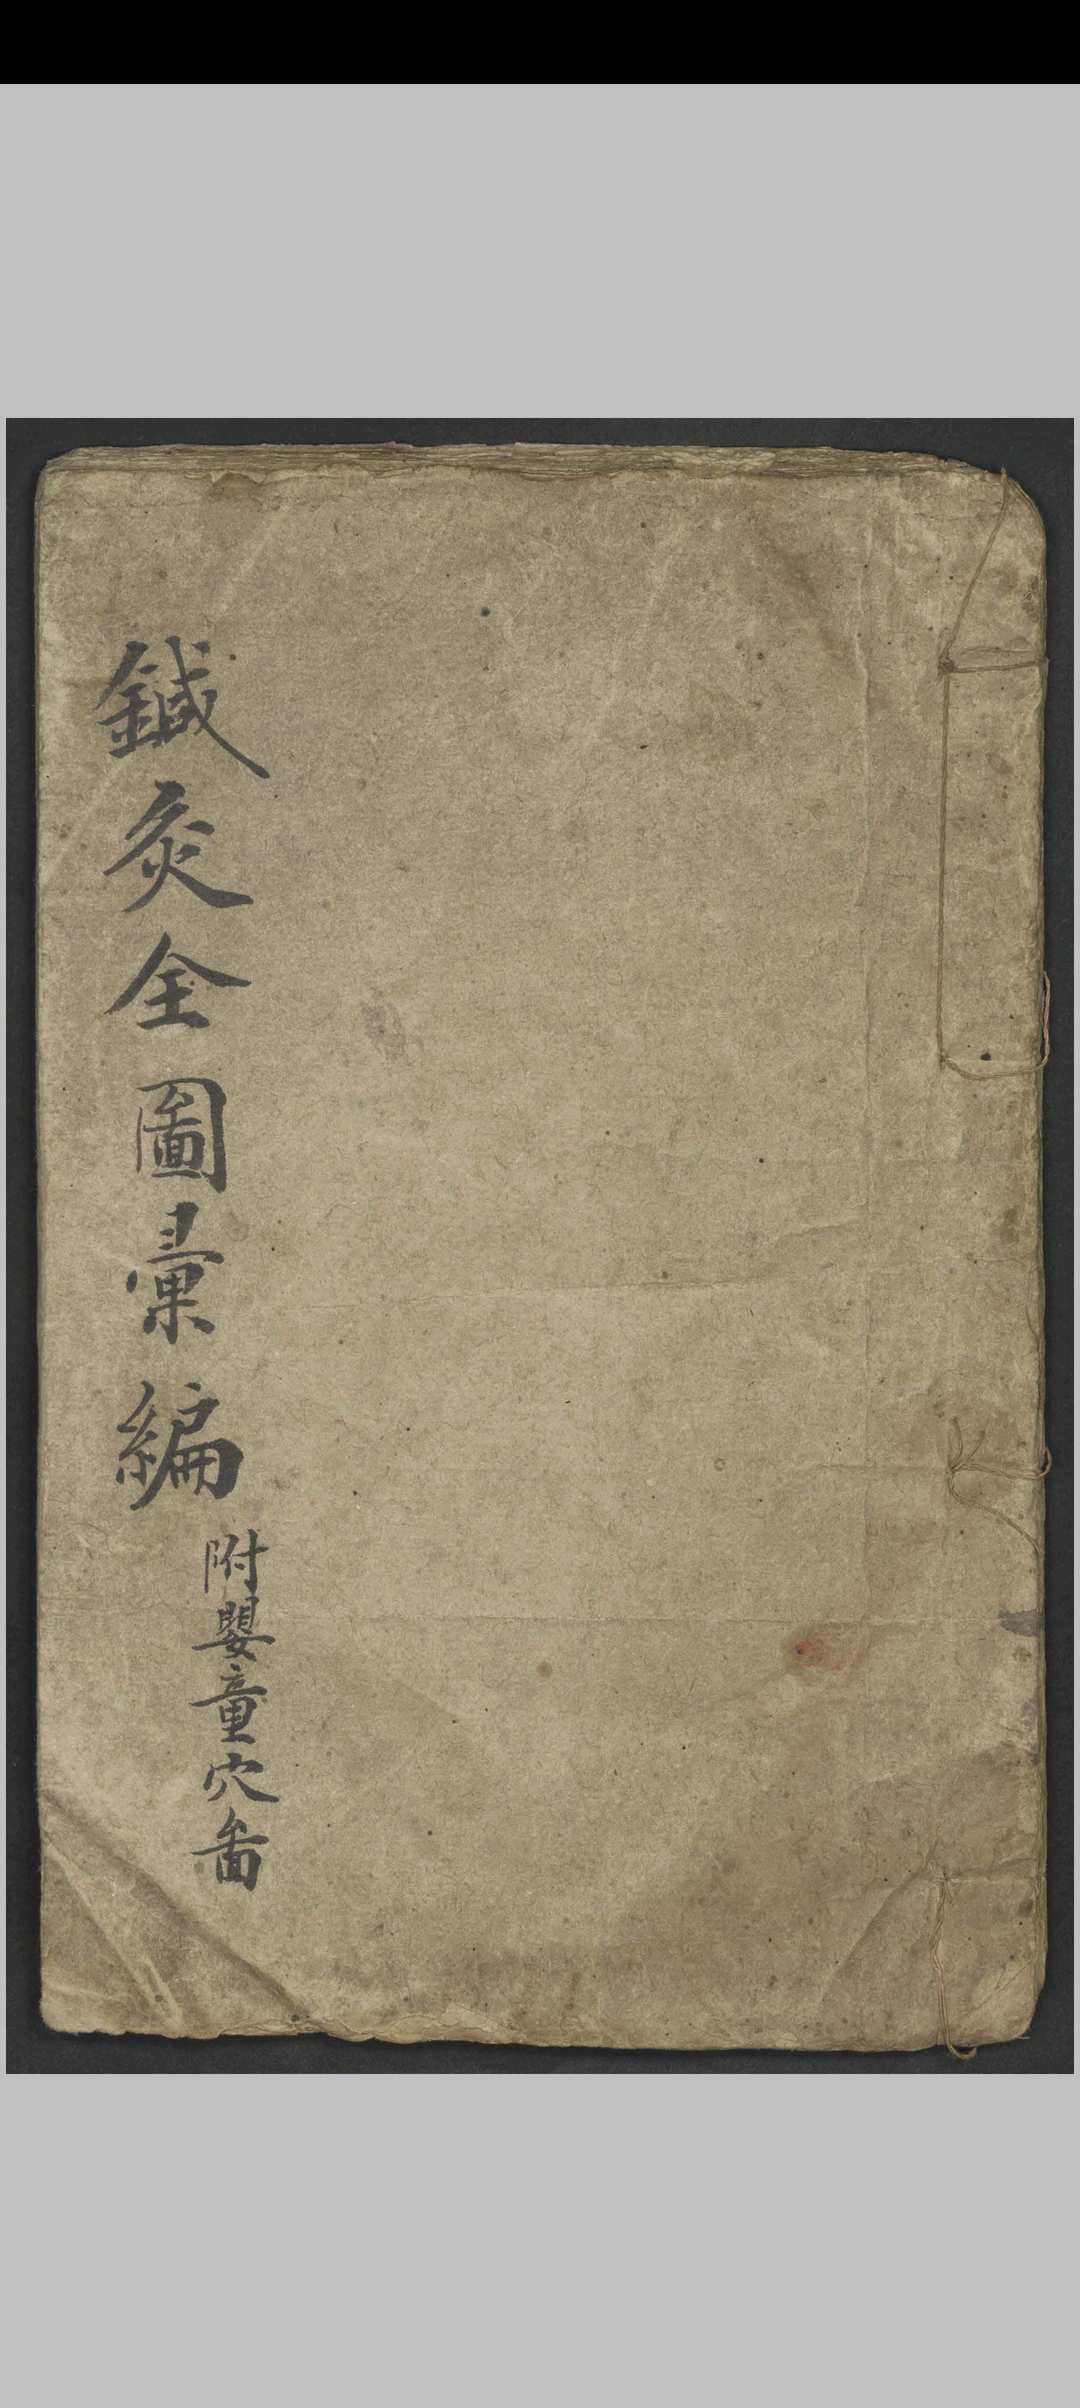 鍼灸全圖彙編
附嬰童穴啚